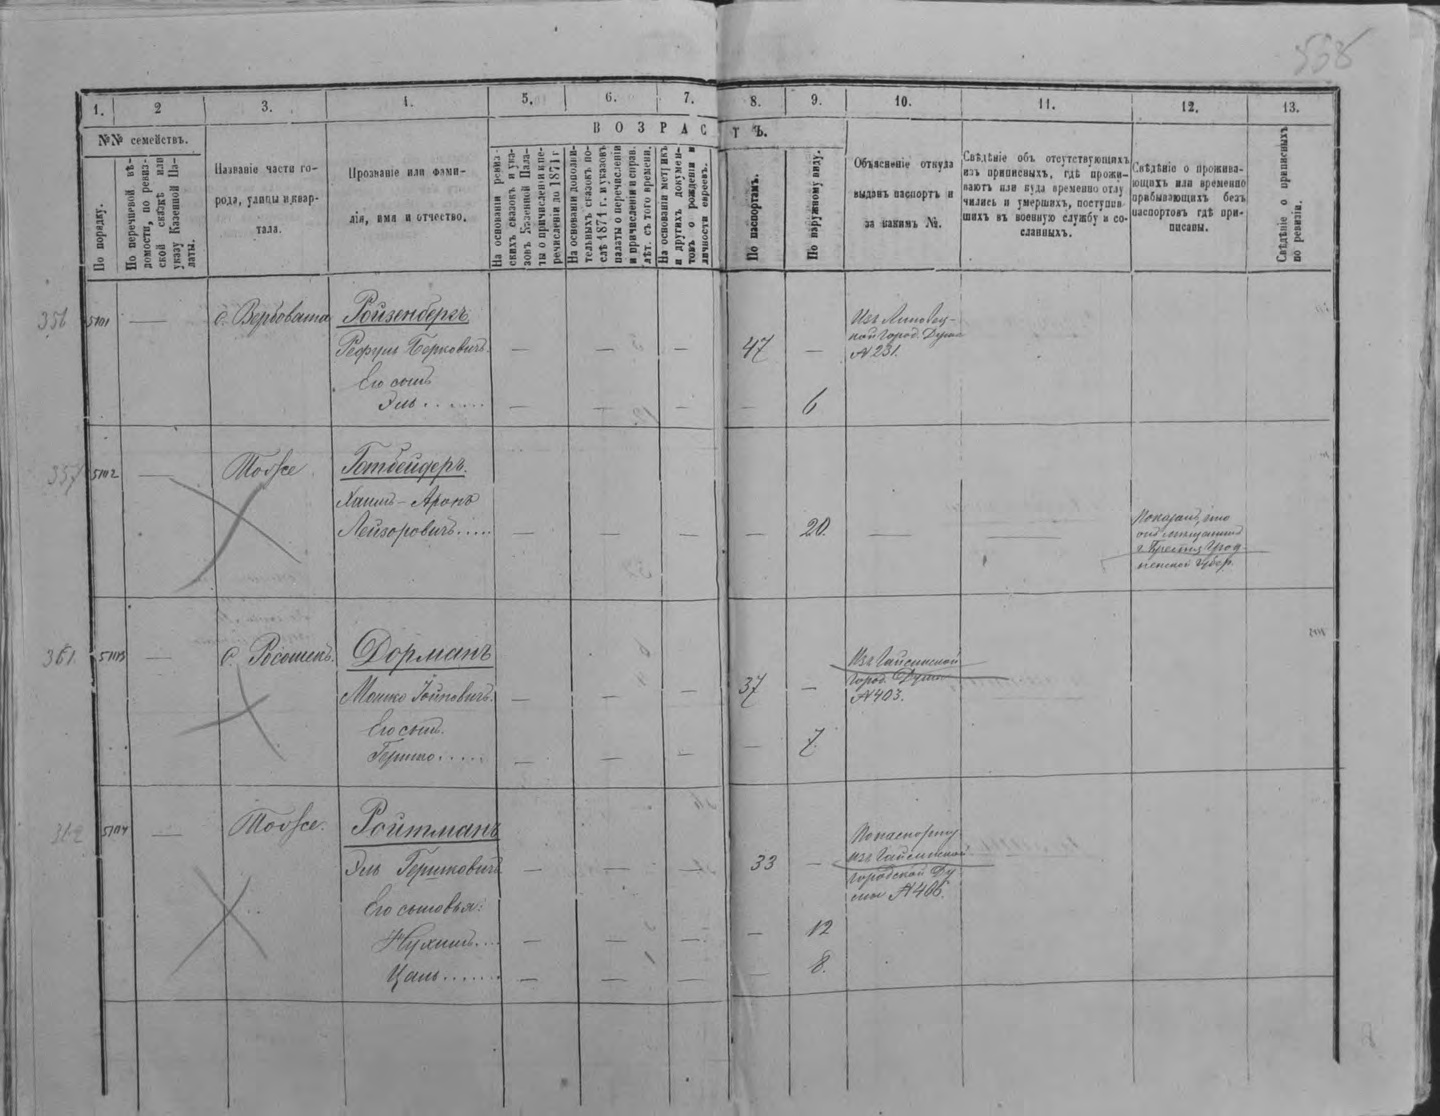 558
1. 2 3. 4. 5. 6. 7. 8. 9. 10. 11. 12. 13.
№№ семействъ.
По порядку.
По перечневой вѣ-
домости, по ревиз-
ской сказкѣ или
указу Казенной Па-
латы.
Названіе части го-
рода, улицы и квар-
тала.
Прозваніе или фами-
лія, имя и отчество.
ВОЗРАСТЪ.
На основаніи ревиз-
скихъ сказокъ и ука-
зовъ Казенной Пала-
ты о причисленіи и пе-
речисленіи до 1871 г.
На основаніи дополни-
тельныхъ сказокъ по-
слѣ 1871 г. и указовъ
палаты о перечисленіи
и причисленіи и справ.
лѣт. съ того времени.
На основаніи метрикъ
и другихъ докумен-
товъ о рожденіи и
личности евреевъ.
По паспортамъ.
По наружному виду.
Объясненіе откуда
выданъ паспортъ и
за какимъ №.
Свѣдѣніе объ отсутствующихъ
изъ приписныхъ, гдѣ прожи-
ваютъ или куда временно отлу
чились и умершихъ, поступив-
шихъ въ военную службу и со-
сланныхъ.
Свѣдѣніе о прожива-
ющихъ или временно
прибывающихъ безъ
паспортовъ гдѣ при-
писаны.
Свѣдѣніе о приписныхъ
по ревизіи.
356 5111 — с. Вербовата Ройзенбергъ
Рефуль Берковичъ. — — — 47 —
Изъ Липовец-
кой Город. Думы
№ 231.
Его сынъ
Эль . . . . . . — — — — 6
357 5112 — Тоже Готбейдеръ.
Хаимъ-Аронъ
Лейзоровичъ . . . . . — — — — 20. — —
Показалъ, что
онъ мѣщанинъ
г. Бреста Грод-
ненской Губер.
361. 5113 — с. Росошекъ. Дорманъ
Мошко Іойновичъ. — — — 37 —
Изъ Гайсинской
Город. Думы
№ 403.
Его сынъ
Гершко . . . . . — — — — 7.
362 5114 — Тоже. Ройтманъ
Эль Гершковичъ — — — 33 —
По паспорту
изъ Гайсинской
городской Ду
мы № 406.
Его сыновья:
Нухимъ . . . — — — — 12
Цаль . . . . . . — — — — 8.